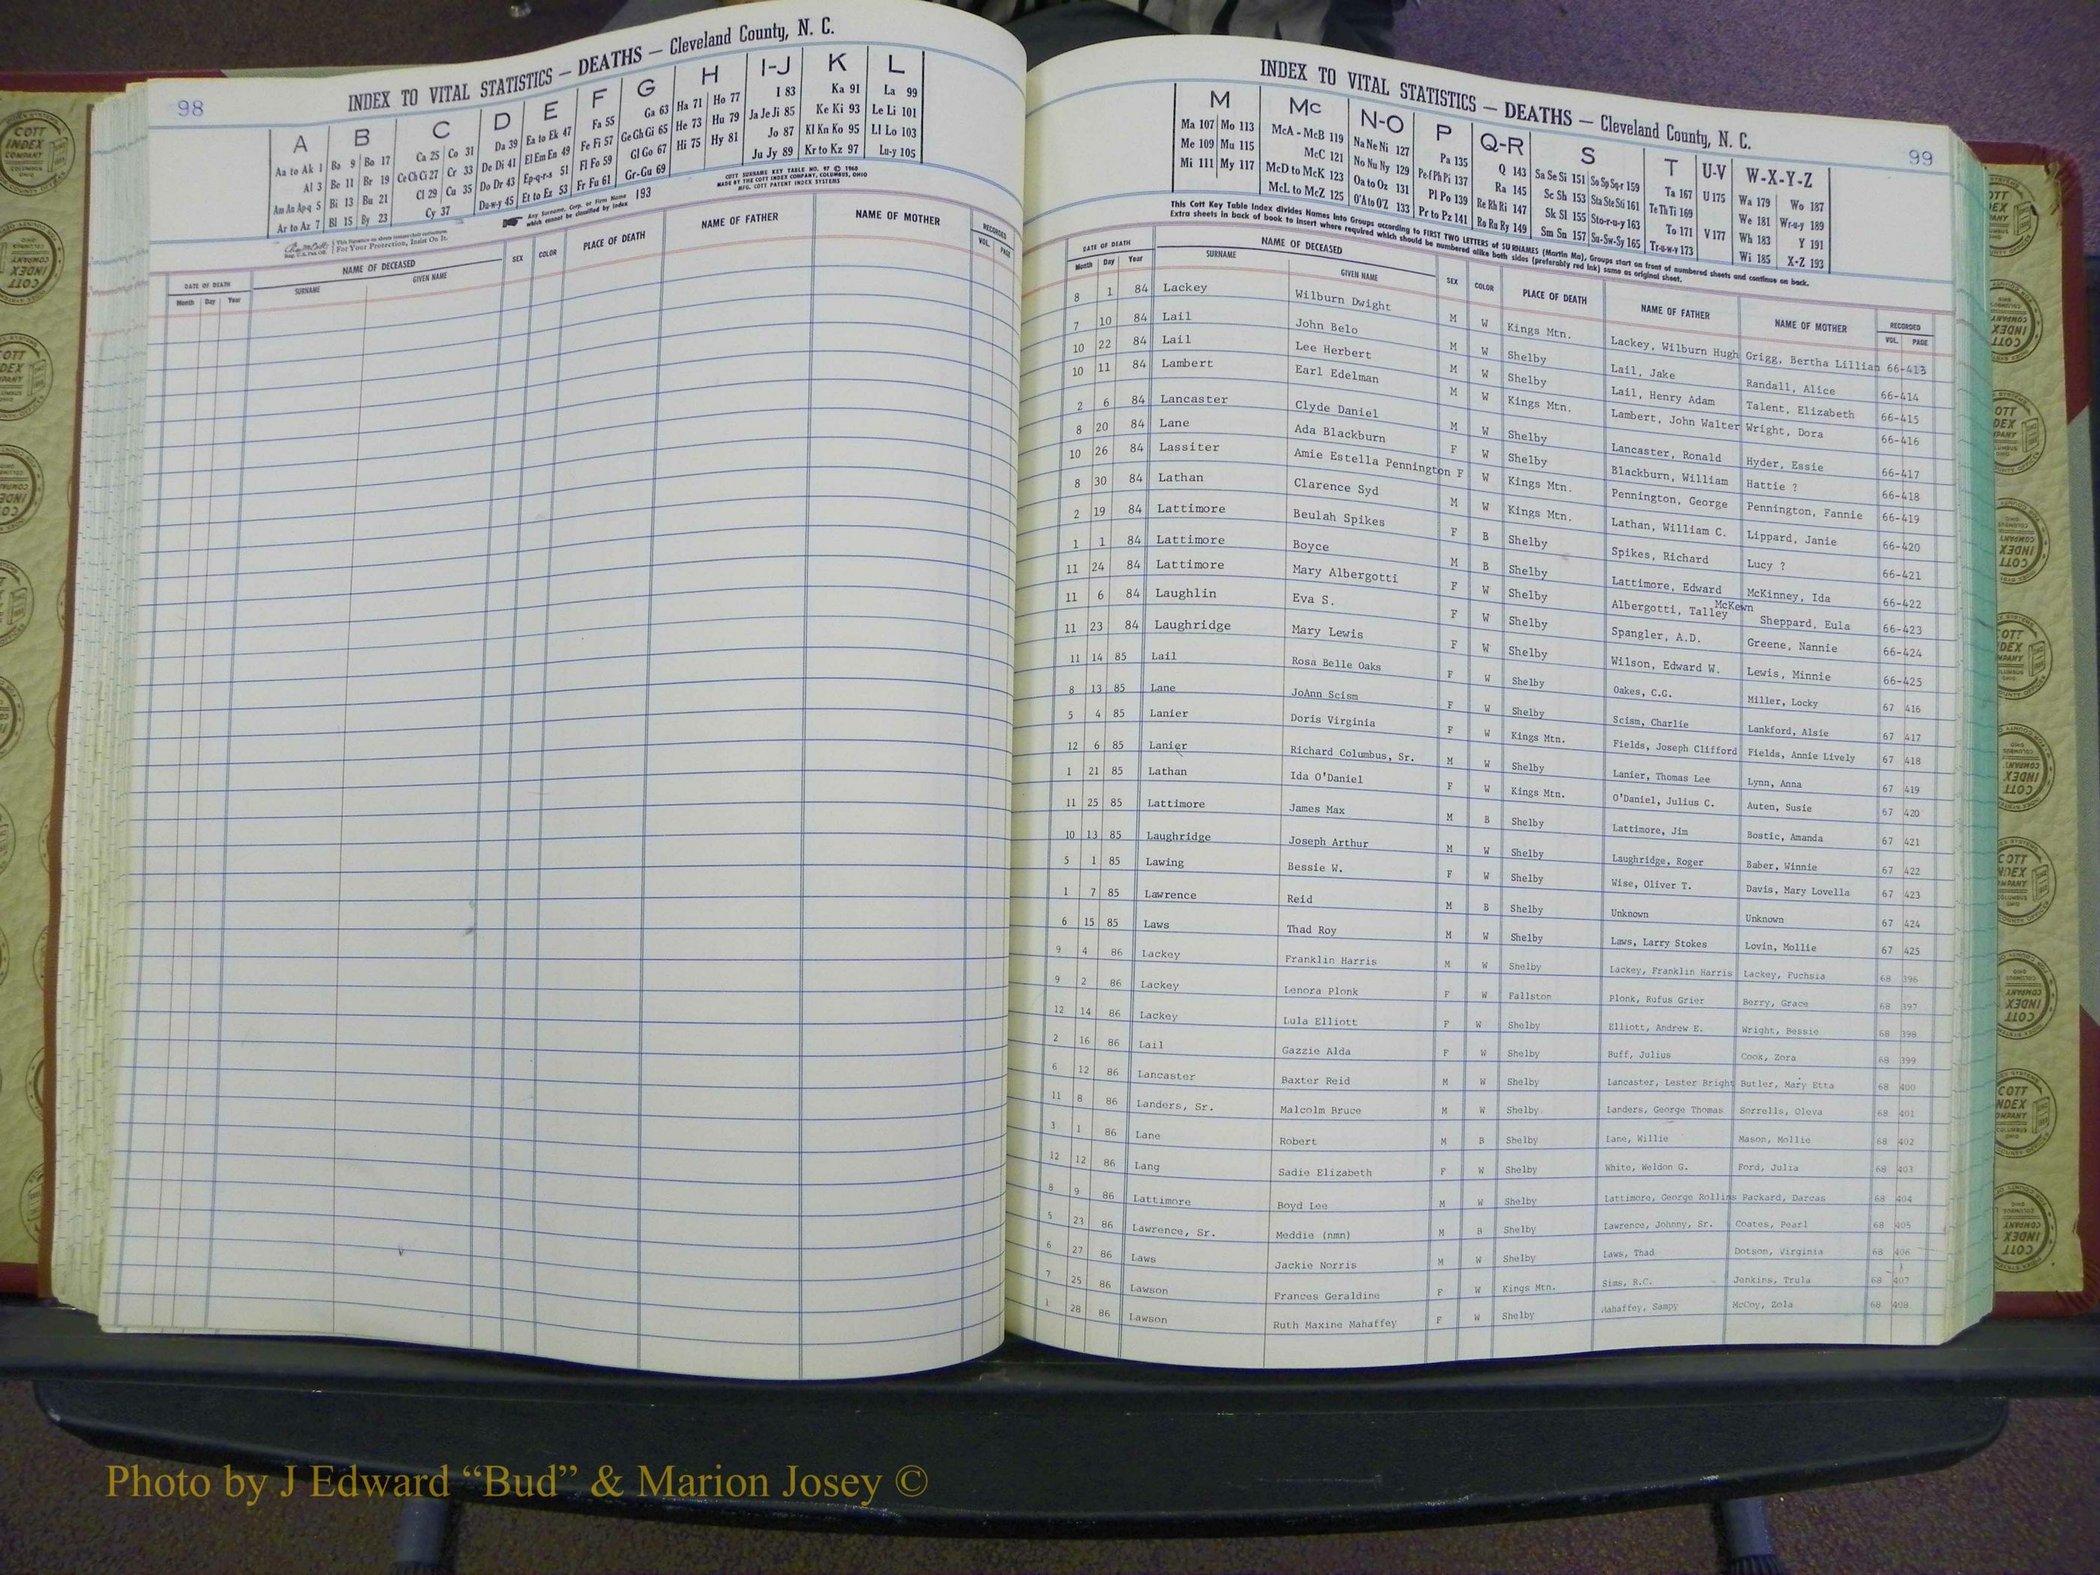 98
INDEX TO VITAL STATISTICS — DEATHS — Cleveland County, N. C.
A B C D E F G H I-J K L
Aa to Ak 1 Ba 9 Bo 17 Ca 25 Co 31 Da 39 Ea to Ek 47 Fa 55 Ga 63 Ha 71 Ho 77 I 83 Ka 91 La 99
Al 3 Be 11 Br 19 Ce Ch Ci 27 Cr 33 De Di 41 El Em En 49 Fe Fi 57 Ge Gh Gi 65 He 73 Hu 79 Ja Je Ji 85 Ke Ki 93 Le Li 101
Am An Ap-q 5 Bi 13 Bu 21 Cl 29 Cu 35 Do Dr 43 Ep-q-r-s 51 Fl Fo 59 Gl Go 67 Hi 75 Hy 81 Jo 87 Kl Kn Ko 95 Ll Lo 103
Ar to Az 7 Bl 15 By 23 Cy 37 Du-w-y 45 Et to Ez 53 Fr Fu 61 Gr-Gu 69 Ju Jy 89 Kr to Kz 97 Lu-y 105
Any Surname, Corp. or Firm Name which cannot be classified by Index 193
COTT SURNAME KEY TABLE NO. 97 © 1968
MADE BY THE COTT INDEX COMPANY, COLUMBUS, OHIO
MFG. COTT PATENT INDEX SYSTEMS
For Your Protection, Insist On It.
DATE OF DEATH NAME OF DECEASED SEX COLOR PLACE OF DEATH NAME OF FATHER NAME OF MOTHER RECORDED
Month Day Year SURNAME GIVEN NAME VOL. PAGE
INDEX TO VITAL STATISTICS — DEATHS — Cleveland County, N. C.
99
M Mc N-O P Q-R S T U-V W-X-Y-Z
Ma 107 Mo 113 McA - McB 119 Na Ne Ni 127 Pa 135 Q 143 Sa Se Si 151 So Sp Sq-r 159 Ta 167 U 175 Wa 179 Wo 187
Me 109 Mu 115 McC 121 No Nu Ny 129 Pe f Ph Pi 137 Ra 145 Sc Sh 153 Sta Ste Sti 161 Te Th Ti 169 We 181 Wr-u-y 189
Mi 111 My 117 McD to McK 123 Oa to Oz 131 Pl Po 139 Re Rh Ri 147 Sk Sl 155 Sto-r-u-y 163 To 171 V 177 Wh 183 Y 191
McL to McZ 125 O'A to O'Z 133 Pr to Pz 141 Ro Ru Ry 149 Sm Sn 157 Su-Sw-Sy 165 Tr-u-w-y 173 Wi 185 X-Z 193
This Cott Key Table Index divides Names into Groups according to FIRST TWO LETTERS of SURNAMES (Martin Ma), Groups start on front of numbered sheets and continue on back.
Extra sheets in back of book to insert where required which should be numbered alike both sides (preferably red ink) same as original sheet.
DATE OF DEATH NAME OF DECEASED SEX COLOR PLACE OF DEATH NAME OF FATHER NAME OF MOTHER RECORDED
Month Day Year SURNAME GIVEN NAME VOL. PAGE
8 1 84 Lackey Wilburn Dwight M W Kings Mtn. Lackey, Wilburn Hugh Grigg, Bertha Lillian 66-413
7 10 84 Lail John Belo M W Shelby Lail, Jake Randall, Alice 66-414
10 22 84 Lail Lee Herbert M W Shelby Lail, Henry Adam Talent, Elizabeth 66-415
10 11 84 Lambert Earl Edelman M W Kings Mtn. Lambert, John Walter Wright, Dora 66-416
2 6 84 Lancaster Clyde Daniel M W Shelby Lancaster, Ronald Hyder, Essie 66-417
8 20 84 Lane Ada Blackburn F W Shelby Blackburn, William Hattie ? 66-418
10 26 84 Lassiter Amie Estella Pennington F W Kings Mtn. Pennington, George Pennington, Fannie 66-419
8 30 84 Lathan Clarence Syd M W Kings Mtn. Lathan, William C. Lippard, Janie 66-420
2 19 84 Lattimore Beulah Spikes F B Shelby Spikes, Richard Lucy ? 66-421
1 1 84 Lattimore Boyce M B Shelby Lattimore, Edward McKinney, Ida 66-422
11 24 84 Lattimore Mary Albergotti F W Shelby Albergotti, Talley McKewn Sheppard, Eula 66-423
11 6 84 Laughlin Eva S. F W Shelby Spangler, A.D. Greene, Nannie 66-424
11 23 84 Laughridge Mary Lewis F W Shelby Wilson, Edward W. Lewis, Minnie 66-425
11 14 85 Lail Rosa Belle Oaks F W Shelby Oakes, C.G. Miller, Locky 67 416
8 13 85 Lane JoAnn Scism F W Shelby Scism, Charlie Lankford, Alsie 67 417
5 4 85 Lanier Doris Virginia F W Kings Mtn. Fields, Joseph Clifford Fields, Annie Lively 67 418
12 6 85 Lanier Richard Columbus, Sr. M W Shelby Lanier, Thomas Lee Lynn, Anna 67 419
1 21 85 Lathan Ida O'Daniel F W Kings Mtn. O'Daniel, Julius C. Auten, Susie 67 420
11 25 85 Lattimore James Max M B Shelby Lattimore, Jim Bostic, Amanda 67 421
10 13 85 Laughridge Joseph Arthur M W Shelby Laughridge, Roger Baber, Winnie 67 422
5 1 85 Lawing Bessie W. F W Shelby Wise, Oliver T. Davis, Mary Lovella 67 423
1 7 85 Lawrence Reid M B Shelby Unknown Unknown 67 424
6 15 85 Laws Thad Roy M W Shelby Laws, Larry Stokes Lovin, Mollie 67 425
9 4 86 Lackey Franklin Harris M W Shelby Lackey, Franklin Harris Lackey, Fuchsia 68 396
9 2 86 Lackey Lenora Plonk F W Fallston Plonk, Rufus Grier Berry, Grace 68 397
12 14 86 Lackey Lula Elliott F W Shelby Elliott, Andrew E. Wright, Bessie 68 398
2 16 86 Lail Gazzie Alda F W Shelby Buff, Julius Cook, Zora 68 399
6 12 86 Lancaster Baxter Reid M W Shelby Lancaster, Lester Bright Butler, Mary Etta 68 400
11 8 86 Landers, Sr. Malcolm Bruce M W Shelby Landers, George Thomas Sorrells, Oleva 68 401
3 1 86 Lane Robert M B Shelby Lane, Willie Mason, Mollie 68 402
12 12 86 Lang Sadie Elizabeth F W Shelby White, Weldon G. Ford, Julia 68 403
8 9 86 Lattimore Boyd Lee M W Shelby Lattimore, George Rollins Packard, Darcas 68 404
5 23 86 Lawrence, Sr. Meddie (nmn) M B Shelby Lawrence, Johnny, Sr. Coates, Pearl 68 405
6 27 86 Laws Jackie Norris M W Shelby Laws, Thad Dotson, Virginia 68 406
7 25 86 Lawson Frances Geraldine F W Kings Mtn. Sims, R.C. Jenkins, Trula 68 407
1 28 86 Lawson Ruth Maxine Mahaffey F W Shelby Mahaffey, Sampy McCoy, Zola 68 408
Photo by J Edward “Bud” & Marion Josey ©